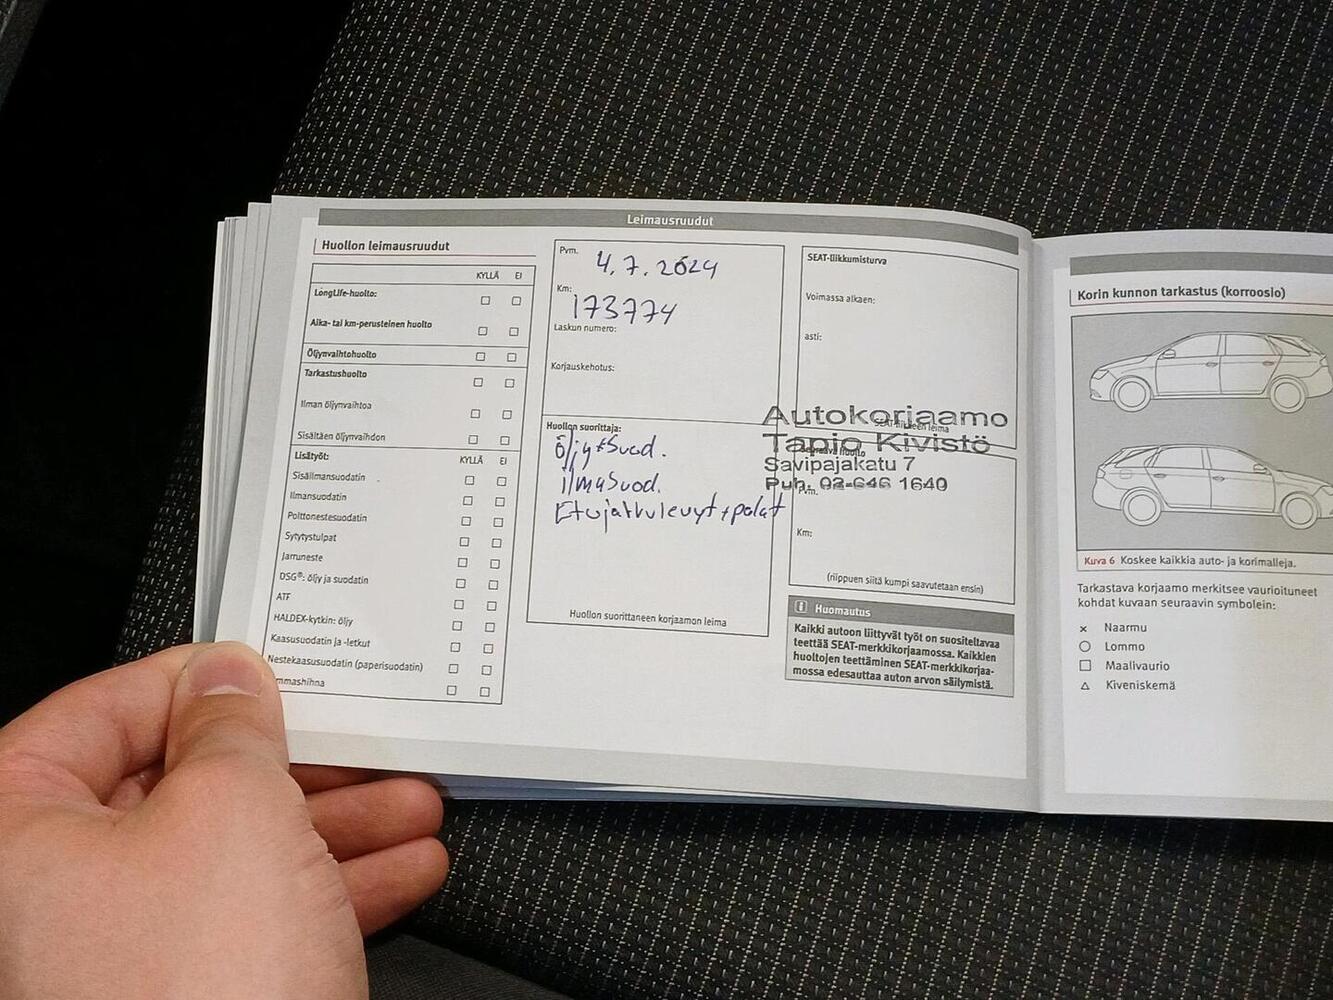 Leimausruudut
Huollon leimausruudut
KYLLÄ EI
LongLife-huolto:
Aika- tai km-perusteinen huolto
Öljynvaihtohuolto
Tarkastushuolto
Ilman öljynvaihtoa
Sisältäen öljynvaihdon
Lisätyöt: KYLLÄ EI
Sisäilmansuodatin
Ilmansuodatin
Polttonestesuodatin
Sytytystulpat
Jarruneste
DSG®: öljy ja suodatin
ATF
HALDEX-kytkin: öljy
Kaasusuodatin ja -letkut
Nestekaasusuodatin (paperisuodatin)
mmashihna
Pvm. 4.7.2024
Km:
173774
Laskun numero:
Korjauskehotus:
Huollon suorittaja:
öljy+suod.
ilmasuod.
Etujarrulevyt+palat
Huollon suorittaneen korjaamon leima
SEAT-liikkumisturva
Voimassa alkaen:
asti:
Autokorjaamo
Tapio Kivistö
Savipajakatu 7
Puh. 02-646 1640
Pvm.
Km:
(riippuen siitä kumpi saavutetaan ensin)
i Huomautus
Kaikki autoon liittyvät työt on suositeltavaa
teettää SEAT-merkkikorjaamossa. Kaikkien
huoltojen teettäminen SEAT-merkkikorjaa-
mossa edesauttaa auton arvon säilymistä.
Korin kunnon tarkastus (korroosio)
Kuva 6 Koskee kaikkia auto- ja korimalleja.
Tarkastava korjaamo merkitsee vaurioituneet
kohdat kuvaan seuraavin symbolein:
× Naarmu
○ Lommo
□ Maalivaurio
△ Kiveniskemä